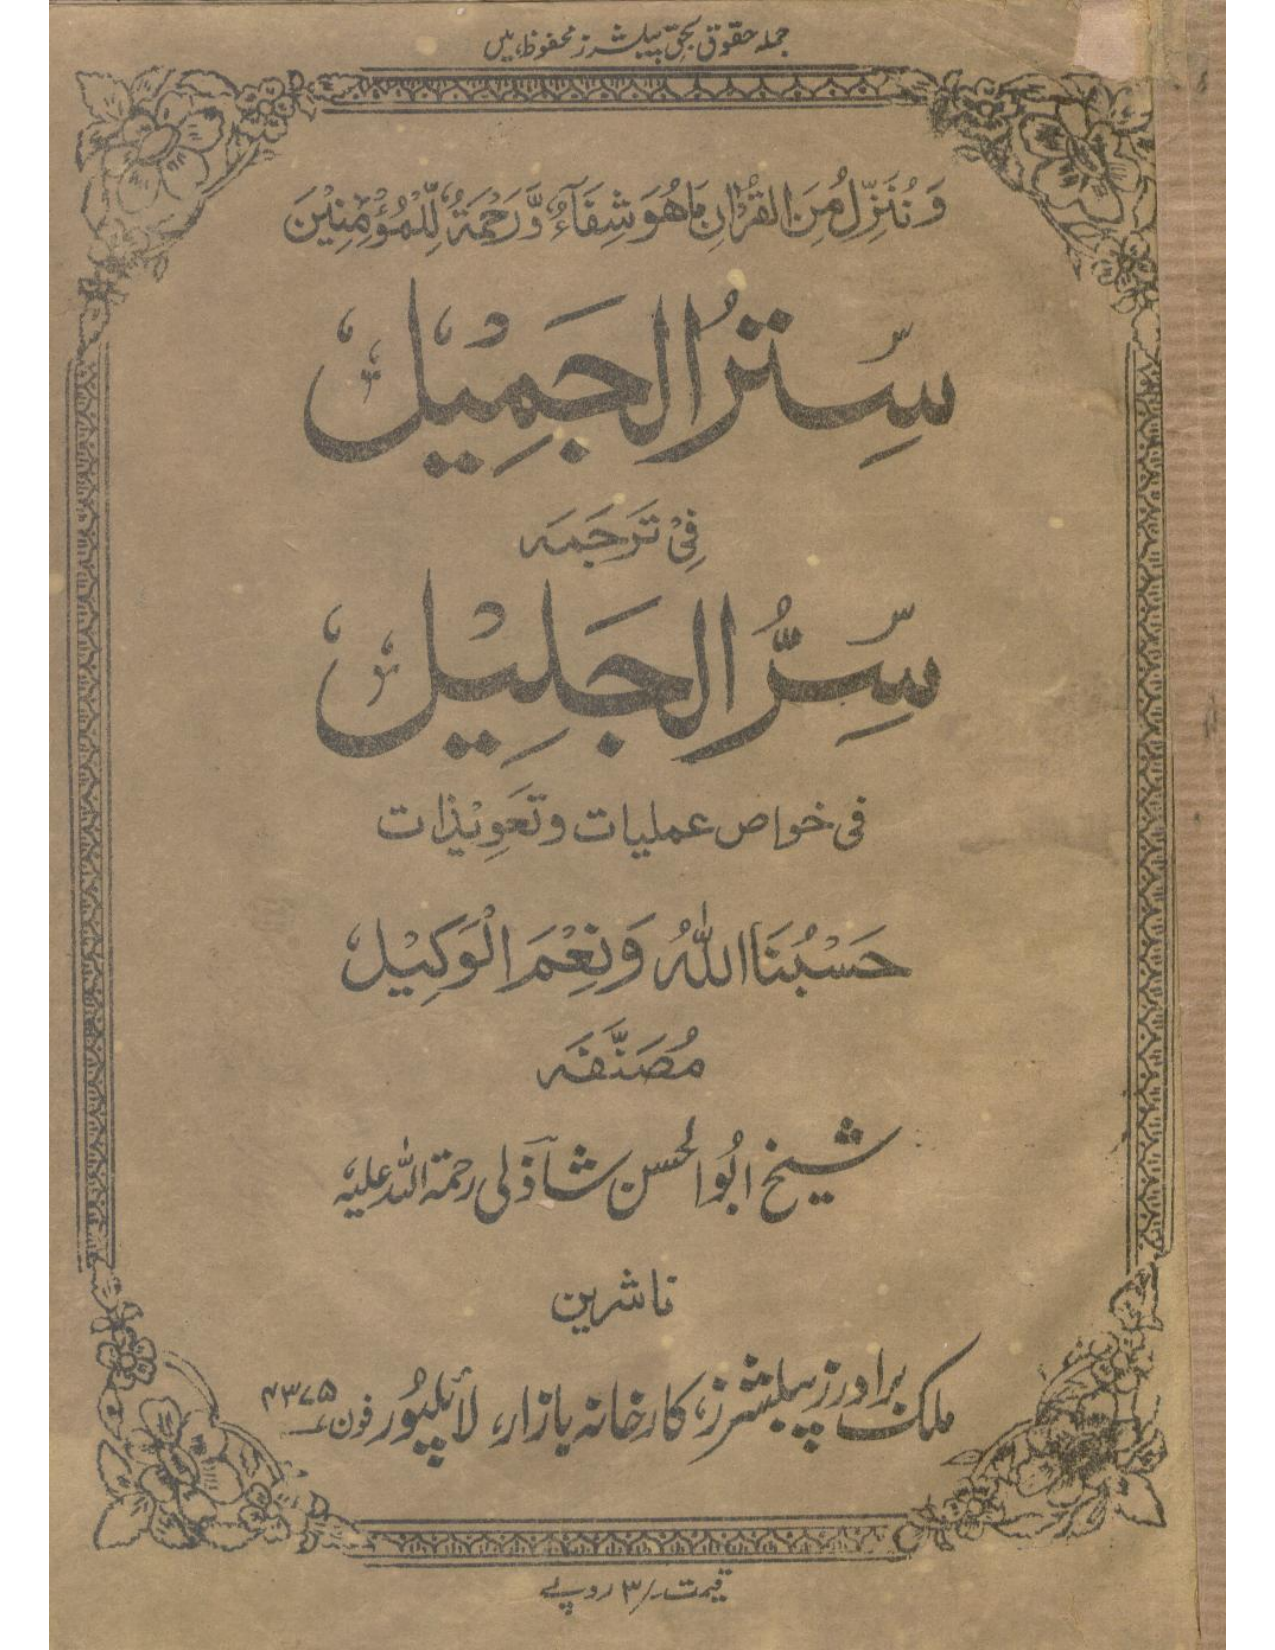 جملہ حقوق بحق پبلشرز محفوظ ہیں
وَنُنَزِّلُ مِنَ الْقُرْاٰنِ مَا هُوَ شِفَآءٌ وَّرَحْمَةٌ لِّلْمُؤْمِنِيْنَ
سِتْرُ الجَمِيْل
فِیْ تَرجَمَہ
سِرُّ الجَلِيْل
فی خواص عملیات و تعویذات
حَسْبُنَا اللّٰهُ وَنِعْمَ الْوَكِيْل
مُصَنَّفَہ
شیخ ابُوالحسن شاذلی رحمۃ اللہ علیہ
ناشرین
ملک برادرز پبلشرز، کارخانہ بازار، لائلپور فون ۴۳۷۵
قیمت -/۳ روپے